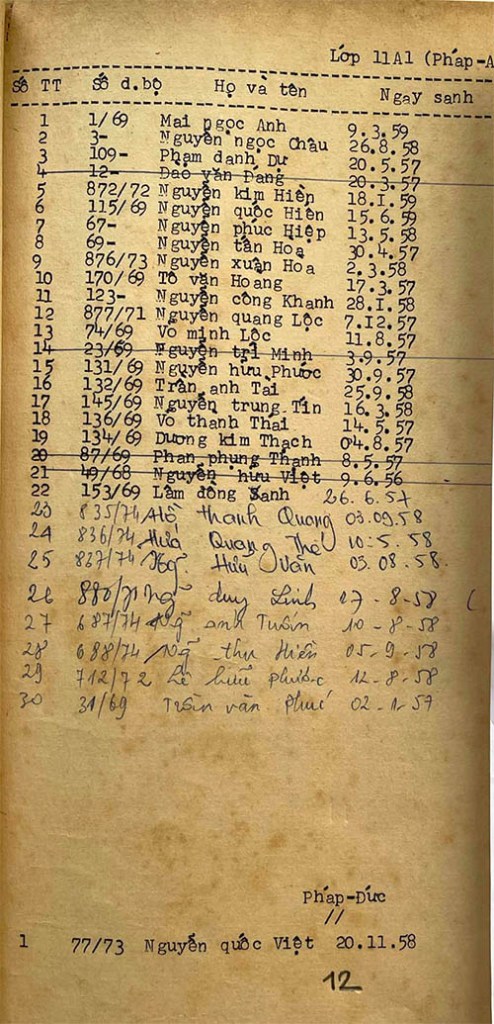 Lớp 11A1 (Pháp-A
Số TT Số d.bộ Họ và tên Ngay sanh
1 1/69 Mai ngọc Anh 9.3.59
2 3- Nguyễn ngọc Châu 26.8.58
3 109- Phạm danh Dự 20.5.57
4 12- Đào văn Đang 20.3.57
5 872/72 Nguyễn kim Hiệp 18.I.59
6 115/69 Nguyễn quốc Hiên 15.6.59
7 67- Nguyễn phúc Hiệp 13.5.58
8 69- Nguyễn tân Hoa 30.4.57
9 876/73 Nguyễn xuân Hoa 2.3.58
10 170/69 Tô văn Hoang 17.3.57
11 123- Nguyễn công Khanh 28.I.58
12 877/71 Nguyễn quang Lộc 7.I2.57
13 74/69 Võ minh Lộc 11.8.57
14 23/69 Nguyễn trí Minh 3.9.57
15 131/69 Nguyễn hưu Phước 30.9.57
16 132/69 Trần anh Tai 25.9.58
17 145/69 Nguyễn trung Tín 16.3.58
18 136/69 Võ thanh Thái 14.5.57
19 134/69 Dương kim Thạch 04.8.57
20 87/69 Phan phụng Thanh 8.5.57
21 49/68 Nguyễn hưu Việt 9.6.56
22 153/69 Lâm đông Sanh 26.6.57
23 835/74 Hồ thanh Quang 03.09.58
24 836/74 Hứa Quang Thế 10.5.58
25 837/74 Ng̃ Hữu Văn 05.08.58.
26 880/71 Ng̃ duy Linh 27-8-58 (
27 687/74 Ng̃ anh Tuấn 10-8-58
28 688/74 Ng̃ thụ Hiền 05-9-58
29 712/72 Lê hữu phước 12-8-58
30 31/69 Trần văn Phú 02-1-57
Pháp-Đức
//
1 77/73 Nguyễn quốc Việt 20.11.58
12